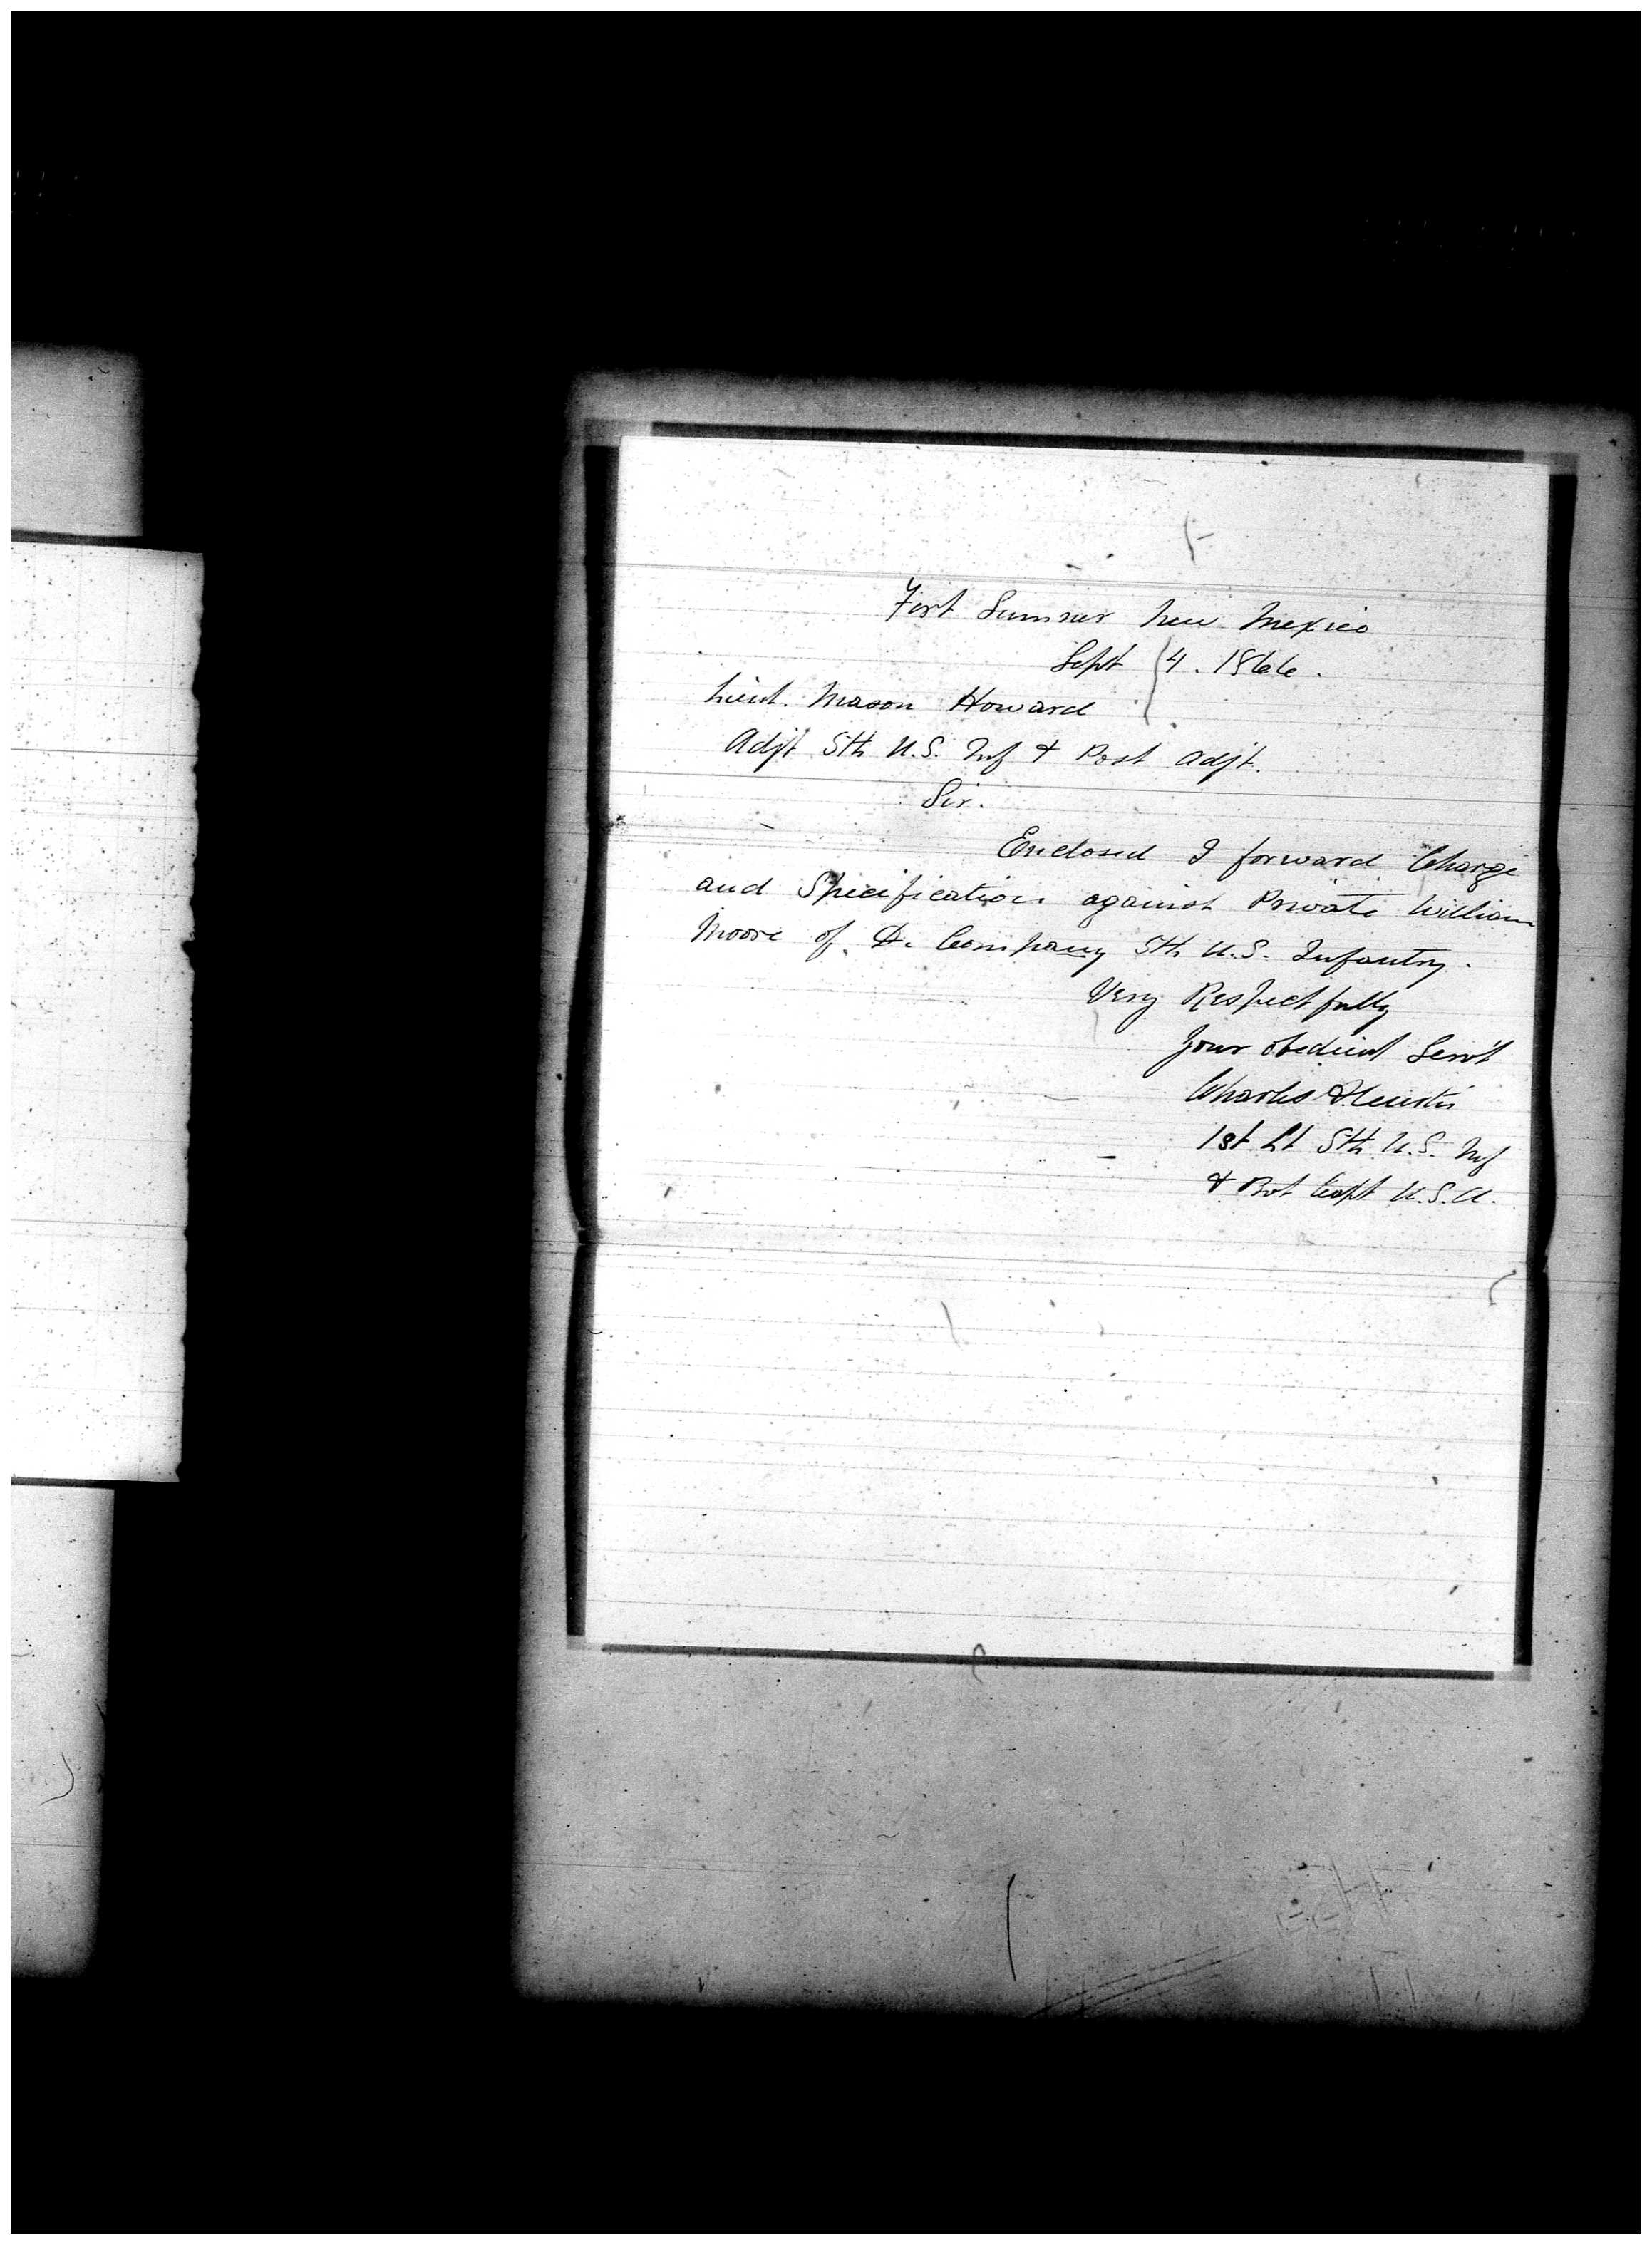 Fort Sumner New Mexico
Sept 4. 1866.
Lieut. Mason Howard
Adjt 5th U.S. Inf & Post Adjt.
Sir.
Enclosed I forward Charge
and Specification against Private William
Moore of D. Company 5th U.S. Infantry.
Very Respectfully
Your obedient Servt
Charles
1st Lt 5th U.S. Inf
& Bvt Capt U.S.A.